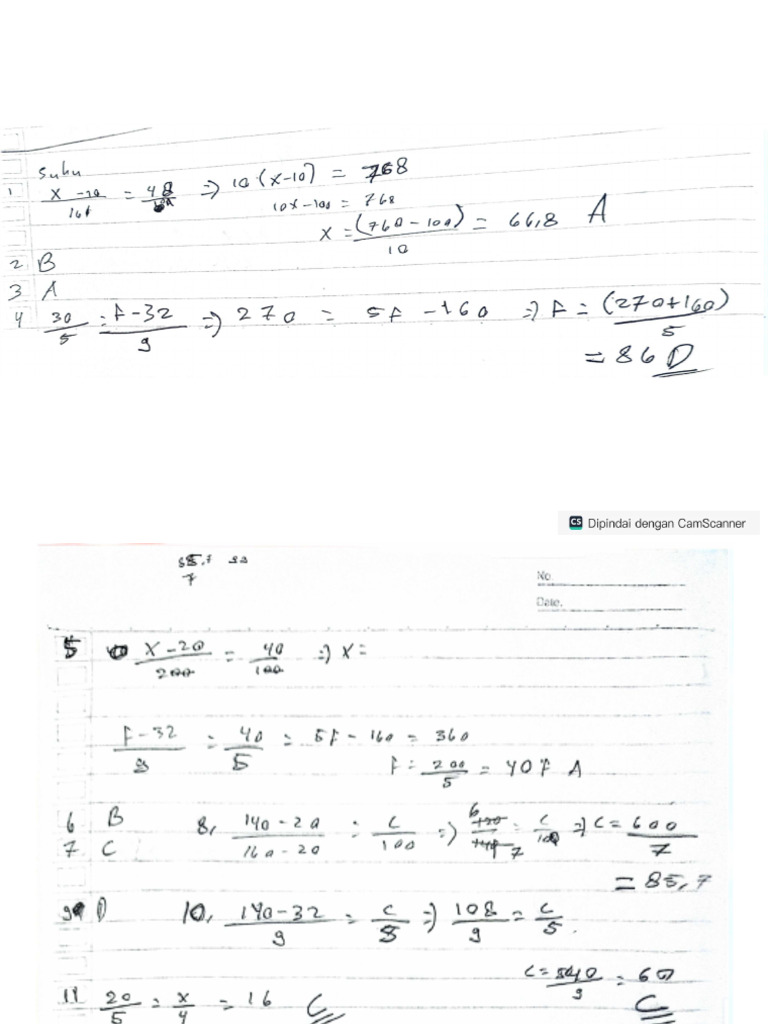 Suhu
1 x - 20 / 160 = 48 / 100 => 10 (x-10) = 768
10x-100 = 768
x = (760 - 100) / 10 = 66,8 A
2 B
3 A
4 30 / 5 = F-32 / 9 => 270 = 5F - 160 => F = (270+160) / 5
= 86 D
CS Dipindai dengan CamScanner
No.
Date.
5 x - 20 / 200 = 40 / 100 => x =
F-32 / 9 = 40 / 5 = 5F - 160 = 360
F = 200 / 5 = 40 F A
6 B
7 C
8, 140 - 20 / 160 - 20 = C / 100 => 6 / 7 = C / 100 => C = 600 / 7
= 85,7
9 D
10, 140-32 / 9 = C / 5 => 108 / 9 = C / 5.
C = 540 / 9 = 60
C
11 20 / 5 = x / 4 = 16 C